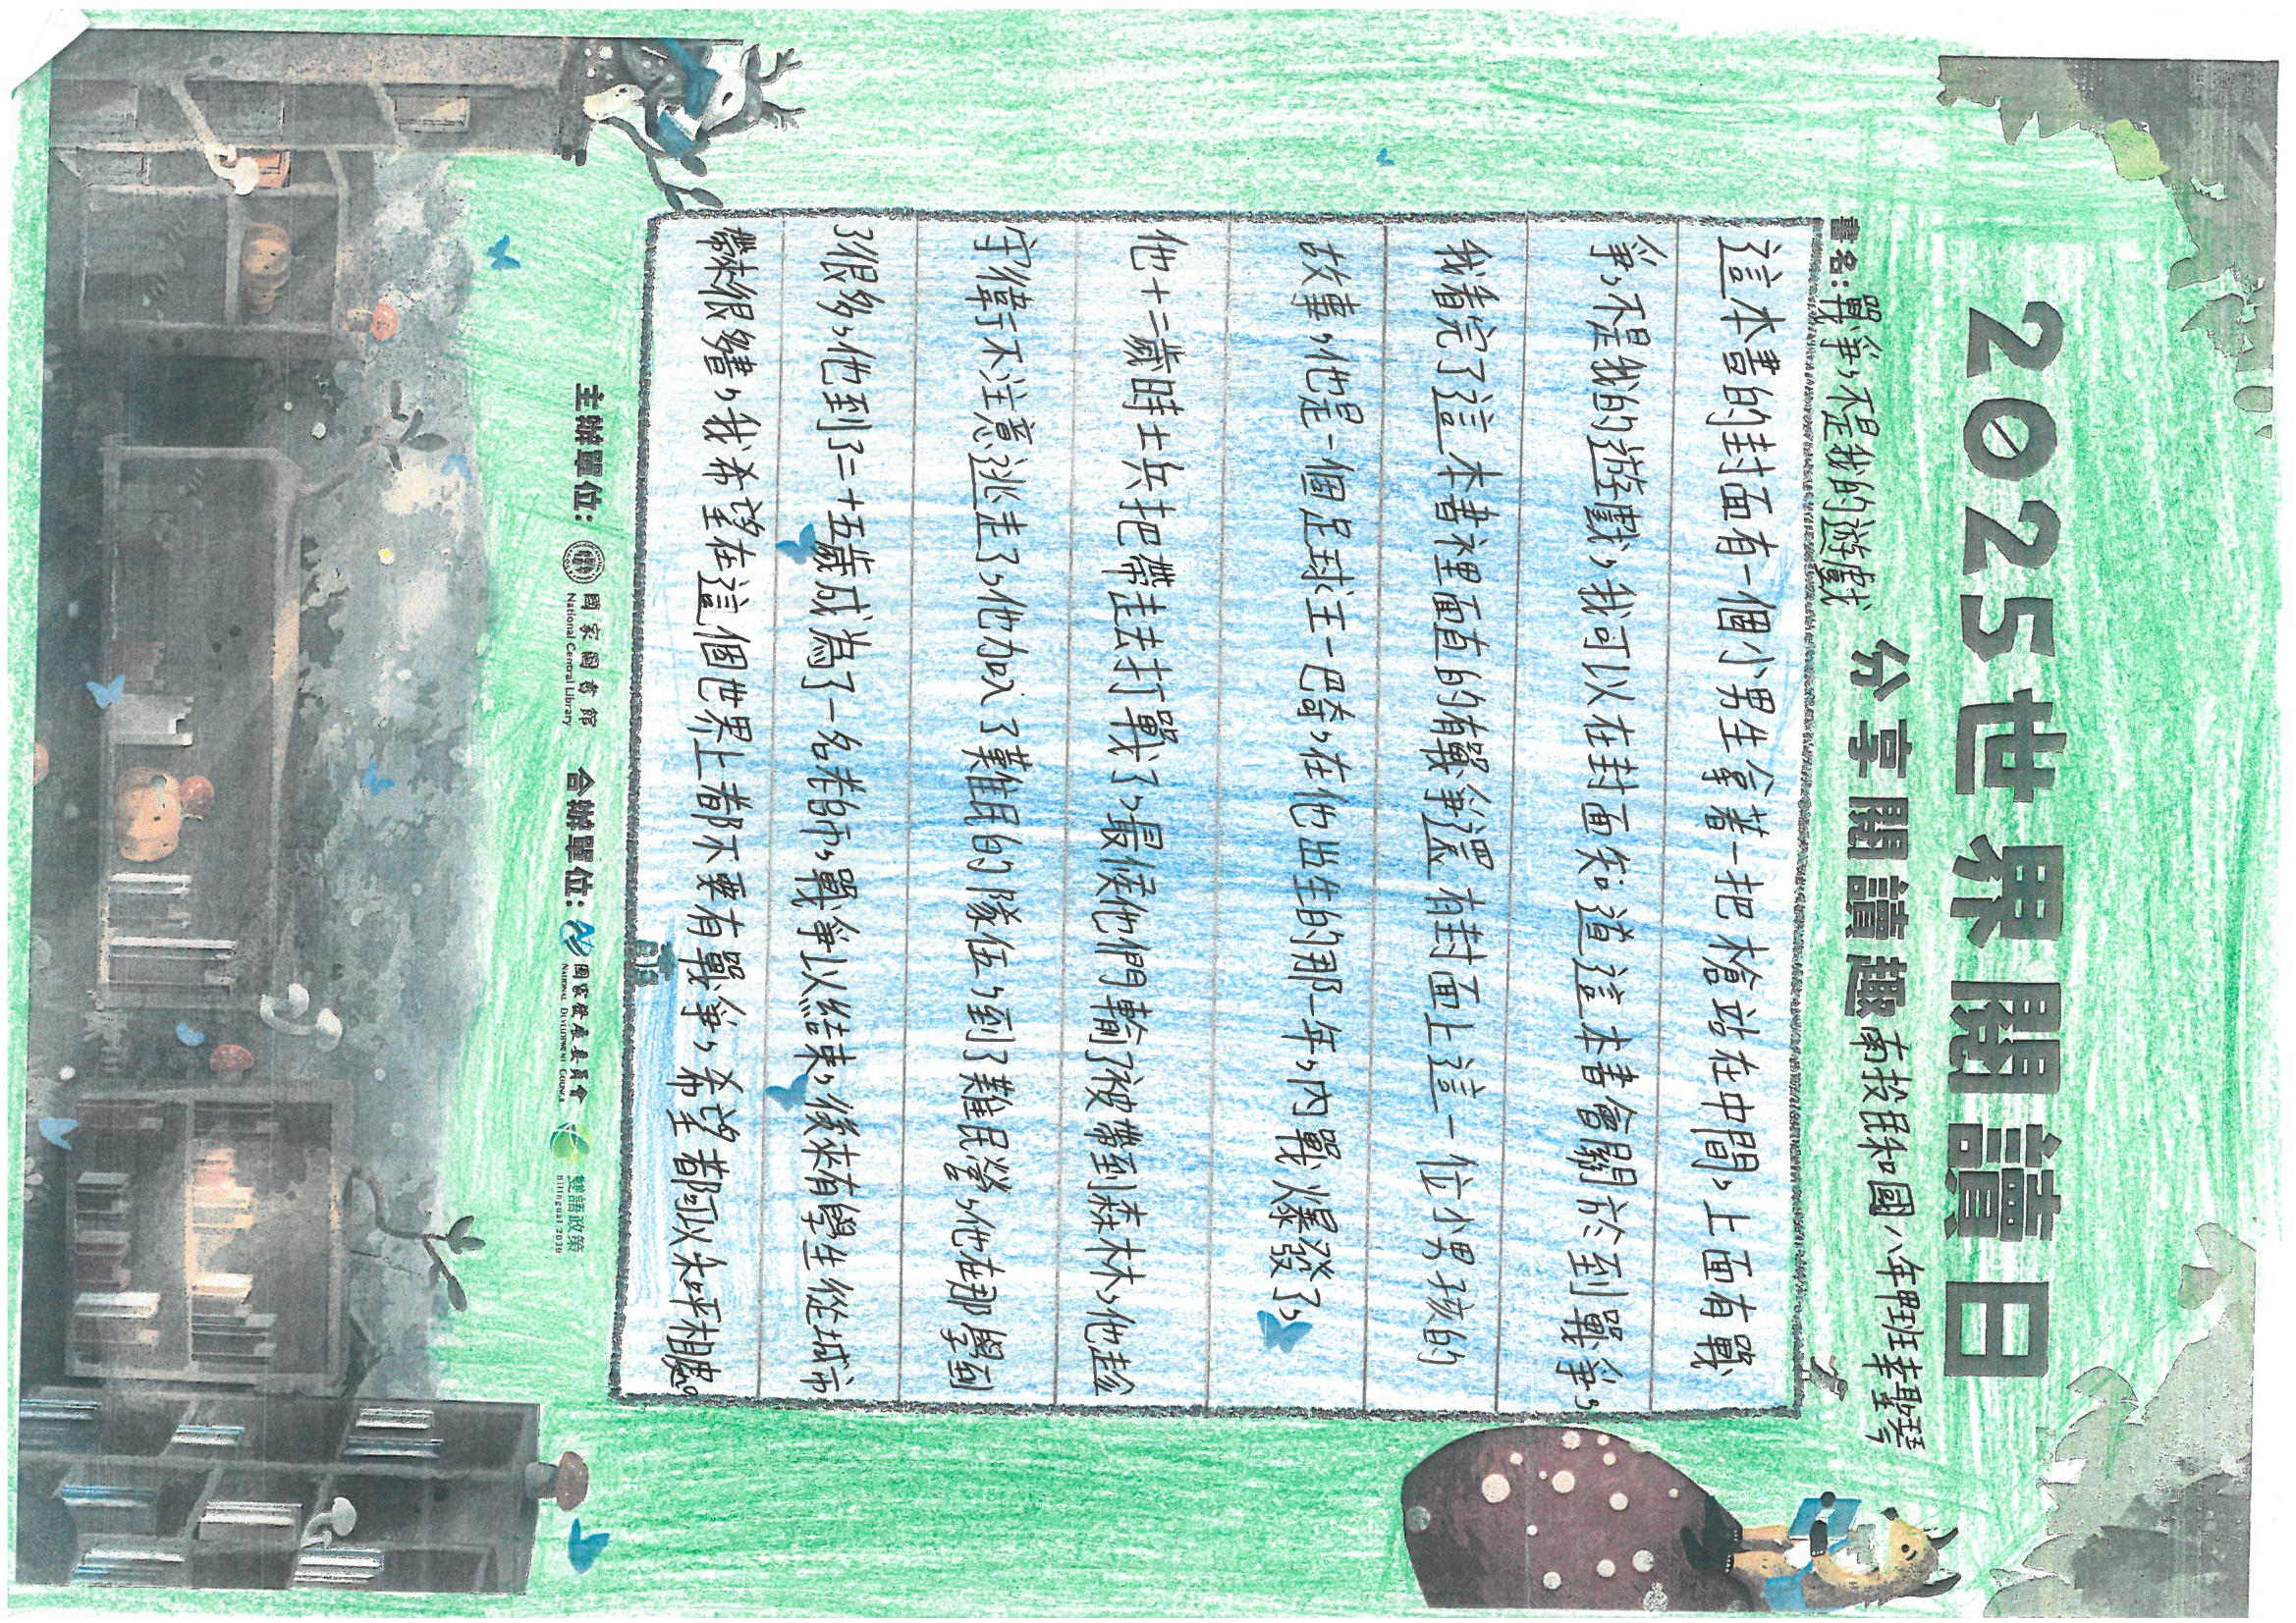 2025世界閱讀日
分享閱讀趣
南投縣和國八年甲班
書名:戰爭,不是我的遊戲
這本書的封面有一個小男生拿著一把槍站在中間,上面有戰
爭,不是我的遊戲,我可以在封面知道這本書會關於到戰爭,
我看完了這本書裡面真的有戰爭還有封面上這一位小男孩的
故事,他是一個足球王一巴騎,在他出生的那一年,內戰爆發了,
他十二歲時士兵把帶走去打戰了,最候他們輸了被帶到森林,他趁
守衛不注意逃走了,他加入了難民的隊伍,到了難民營,他在那學到
了很多,他到了二十五歲成為了一名老師,戰爭以結束,後來有學生從城市
帶來很多書,我希望在這個世界上都不要有戰爭,希望都可以和平相處。
主辦單位:
國家圖書館
National Central Library
合辦單位:
國家發展委員會
NATIONAL DEVELOPMENT COUNCIL
雙語政策
Bilingual 2030